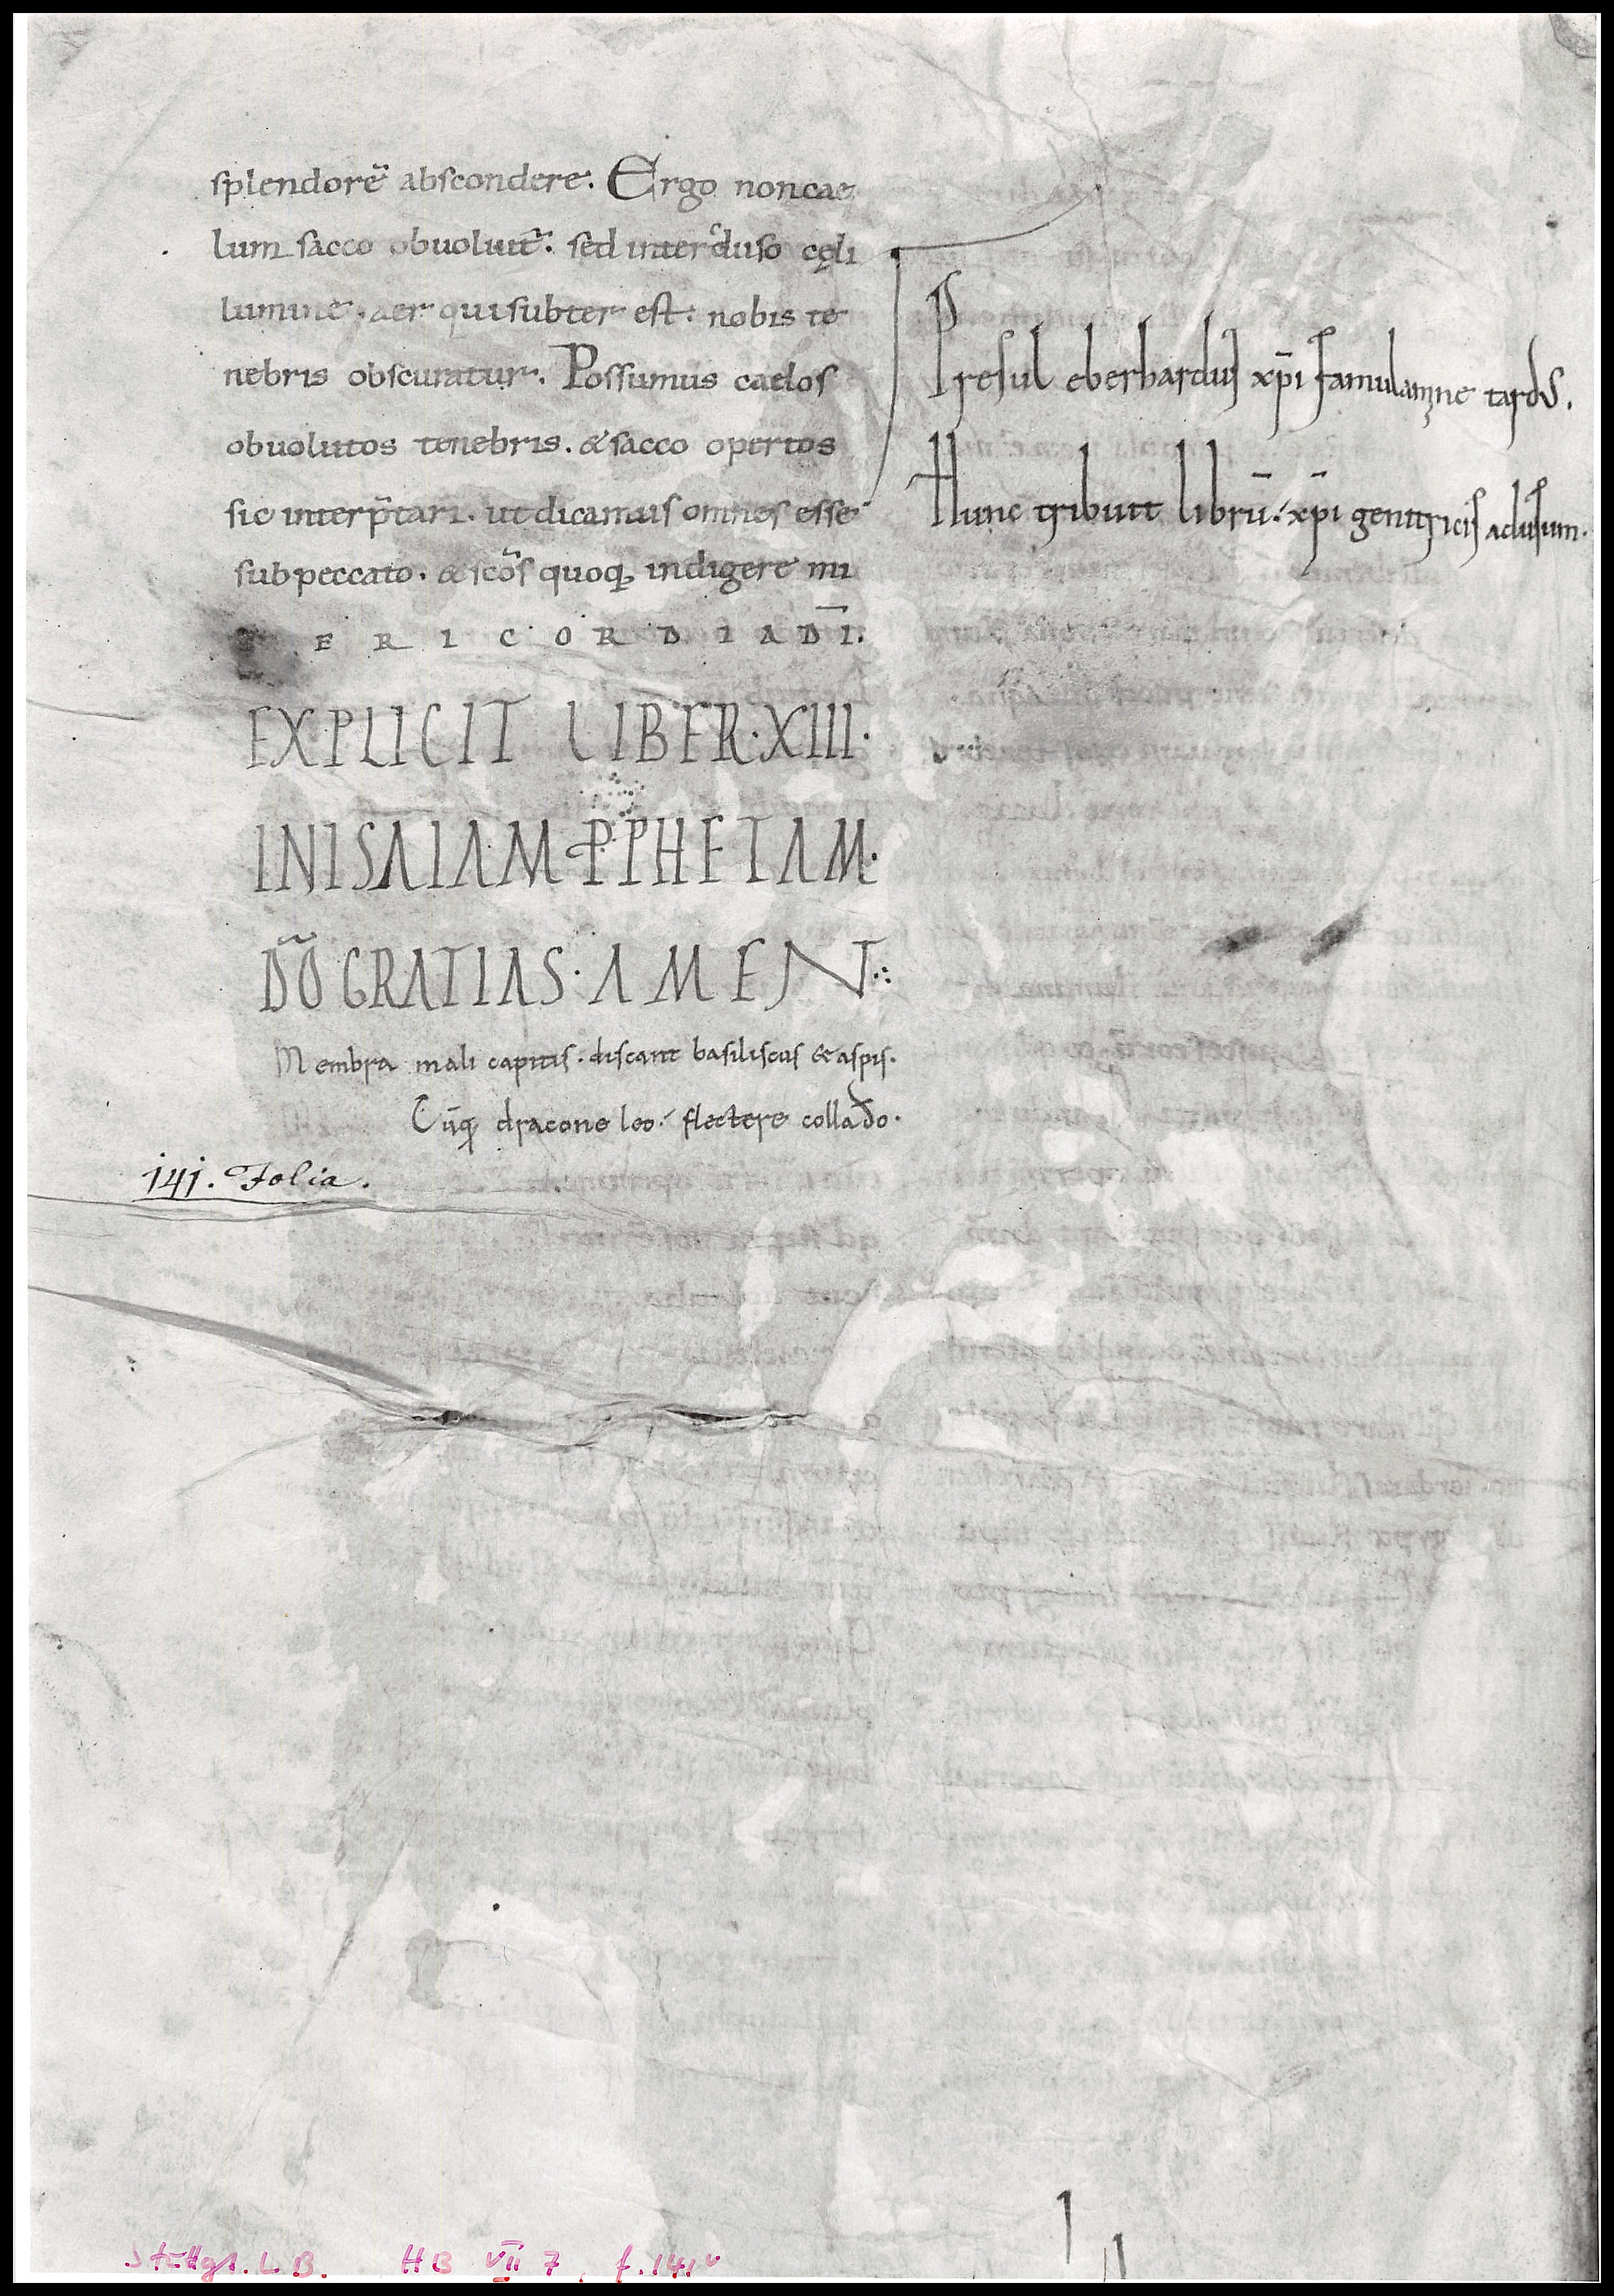 splendorē abscondere. Ergo noncae
lum sacco obuoluit. sed intercluso cęli
lumine. aer qui subter est. nobis te
nebris obscuratur. Possumus caelos
obuolutos tenebris. & sacco opertos
sic interp̄tari. ut dicamus omnes esse
sub peccato. & scōs quoq; indigere mi
S E R I C O R D I A D̄I.
EXPLICIT LIBER·XIII·
INISAIAM PPHETAM·
DŌ GRATIAS·AMEN
Membra mali capitis. discant basiliscus & aspis.
Cūq; dracone leo. flectere colla dō.
141. Folia.
Presul eberhardus xp̄i famulamine tardus.
Hunc tribuit librū. xp̄i genitricis adusum.
Stuttgt. L. B. HB VII 7, f. 141v